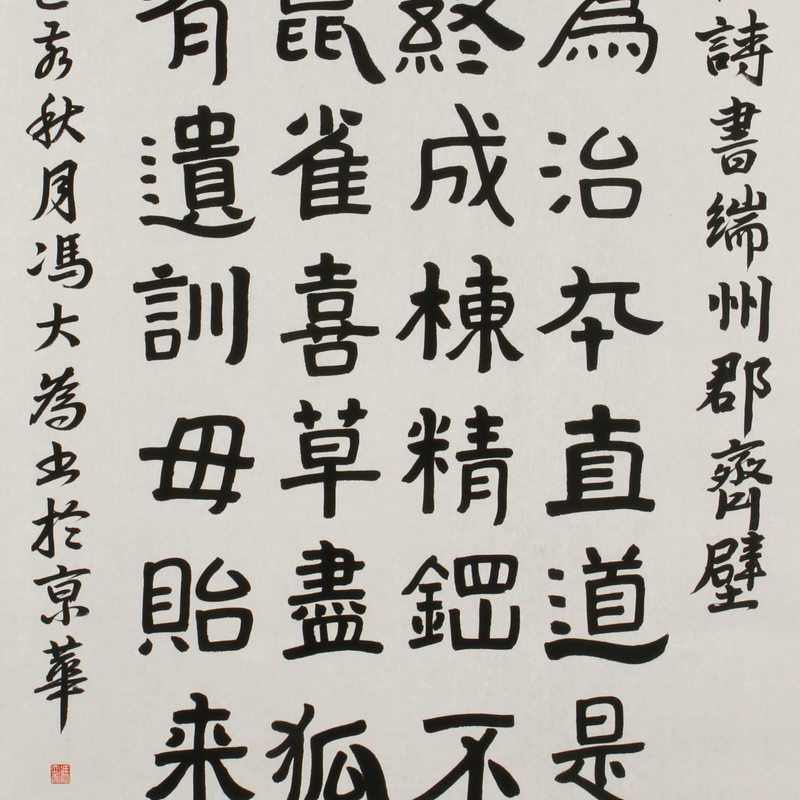 詩書端州郡齊壁
為治夲直道是
終成棟精鋼不
鼠雀喜草盡狐
有遺訓毋貽来
亥秋月馮大為书於京華